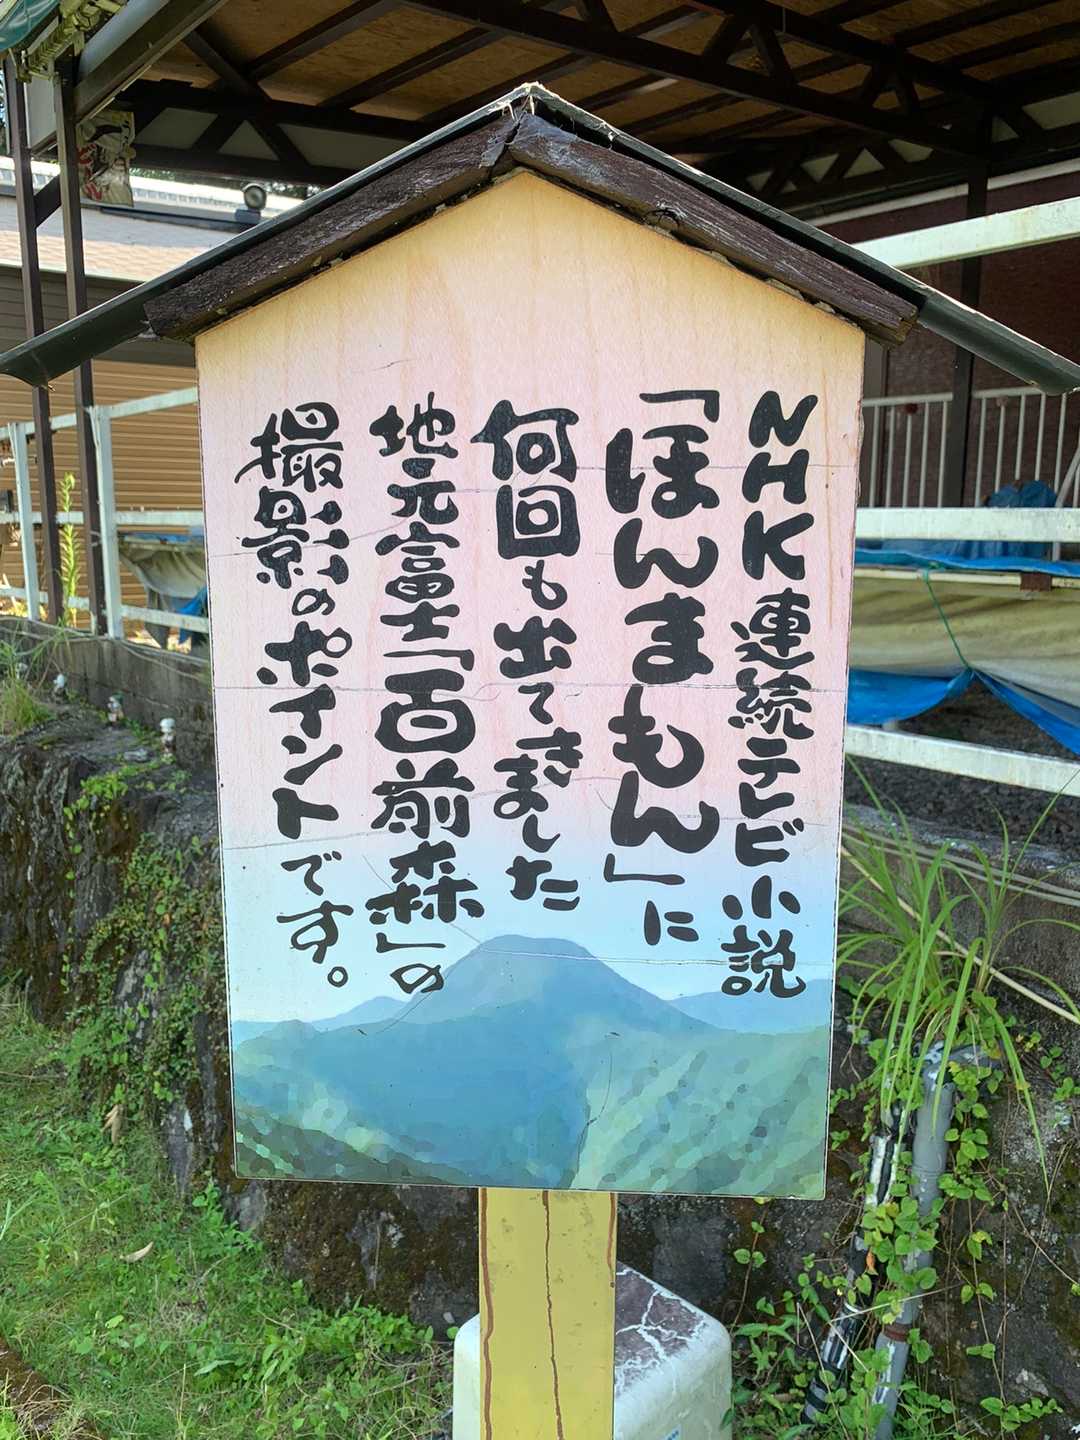 NHK連続テレビ小説
「ほんまもん」に
何回も出てきました
地元富士「百前森」の
撮影のポイントです。